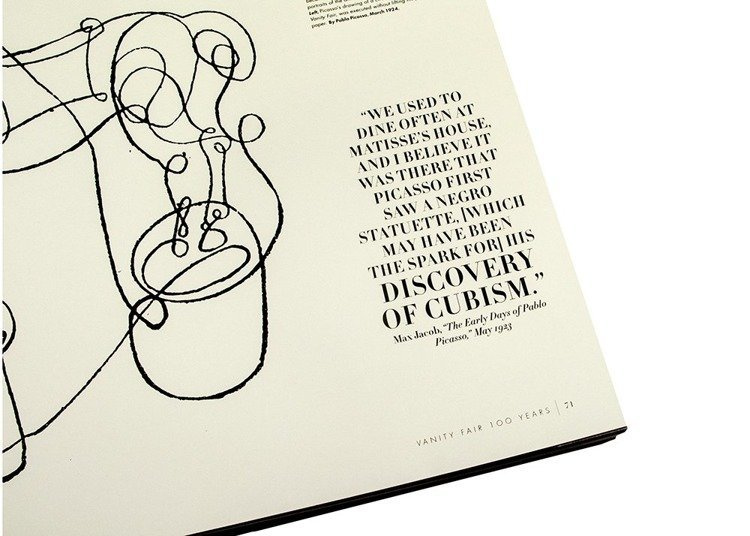 portraits of the
Left, Picasso's drawing of a
Vanity Fair, was executed without lifting
paper. By Pablo Picasso, March 1924.
“WE USED TO
DINE OFTEN AT
MATISSE'S HOUSE,
AND I BELIEVE IT
WAS THERE THAT
PICASSO FIRST
SAW A NEGRO
STATUETTE, [WHICH
MAY HAVE BEEN
THE SPARK FOR] HIS
DISCOVERY
OF CUBISM.”
Max Jacob, “The Early Days of Pablo
Picasso,” May 1923
VANITY FAIR 100 YEARS | 71